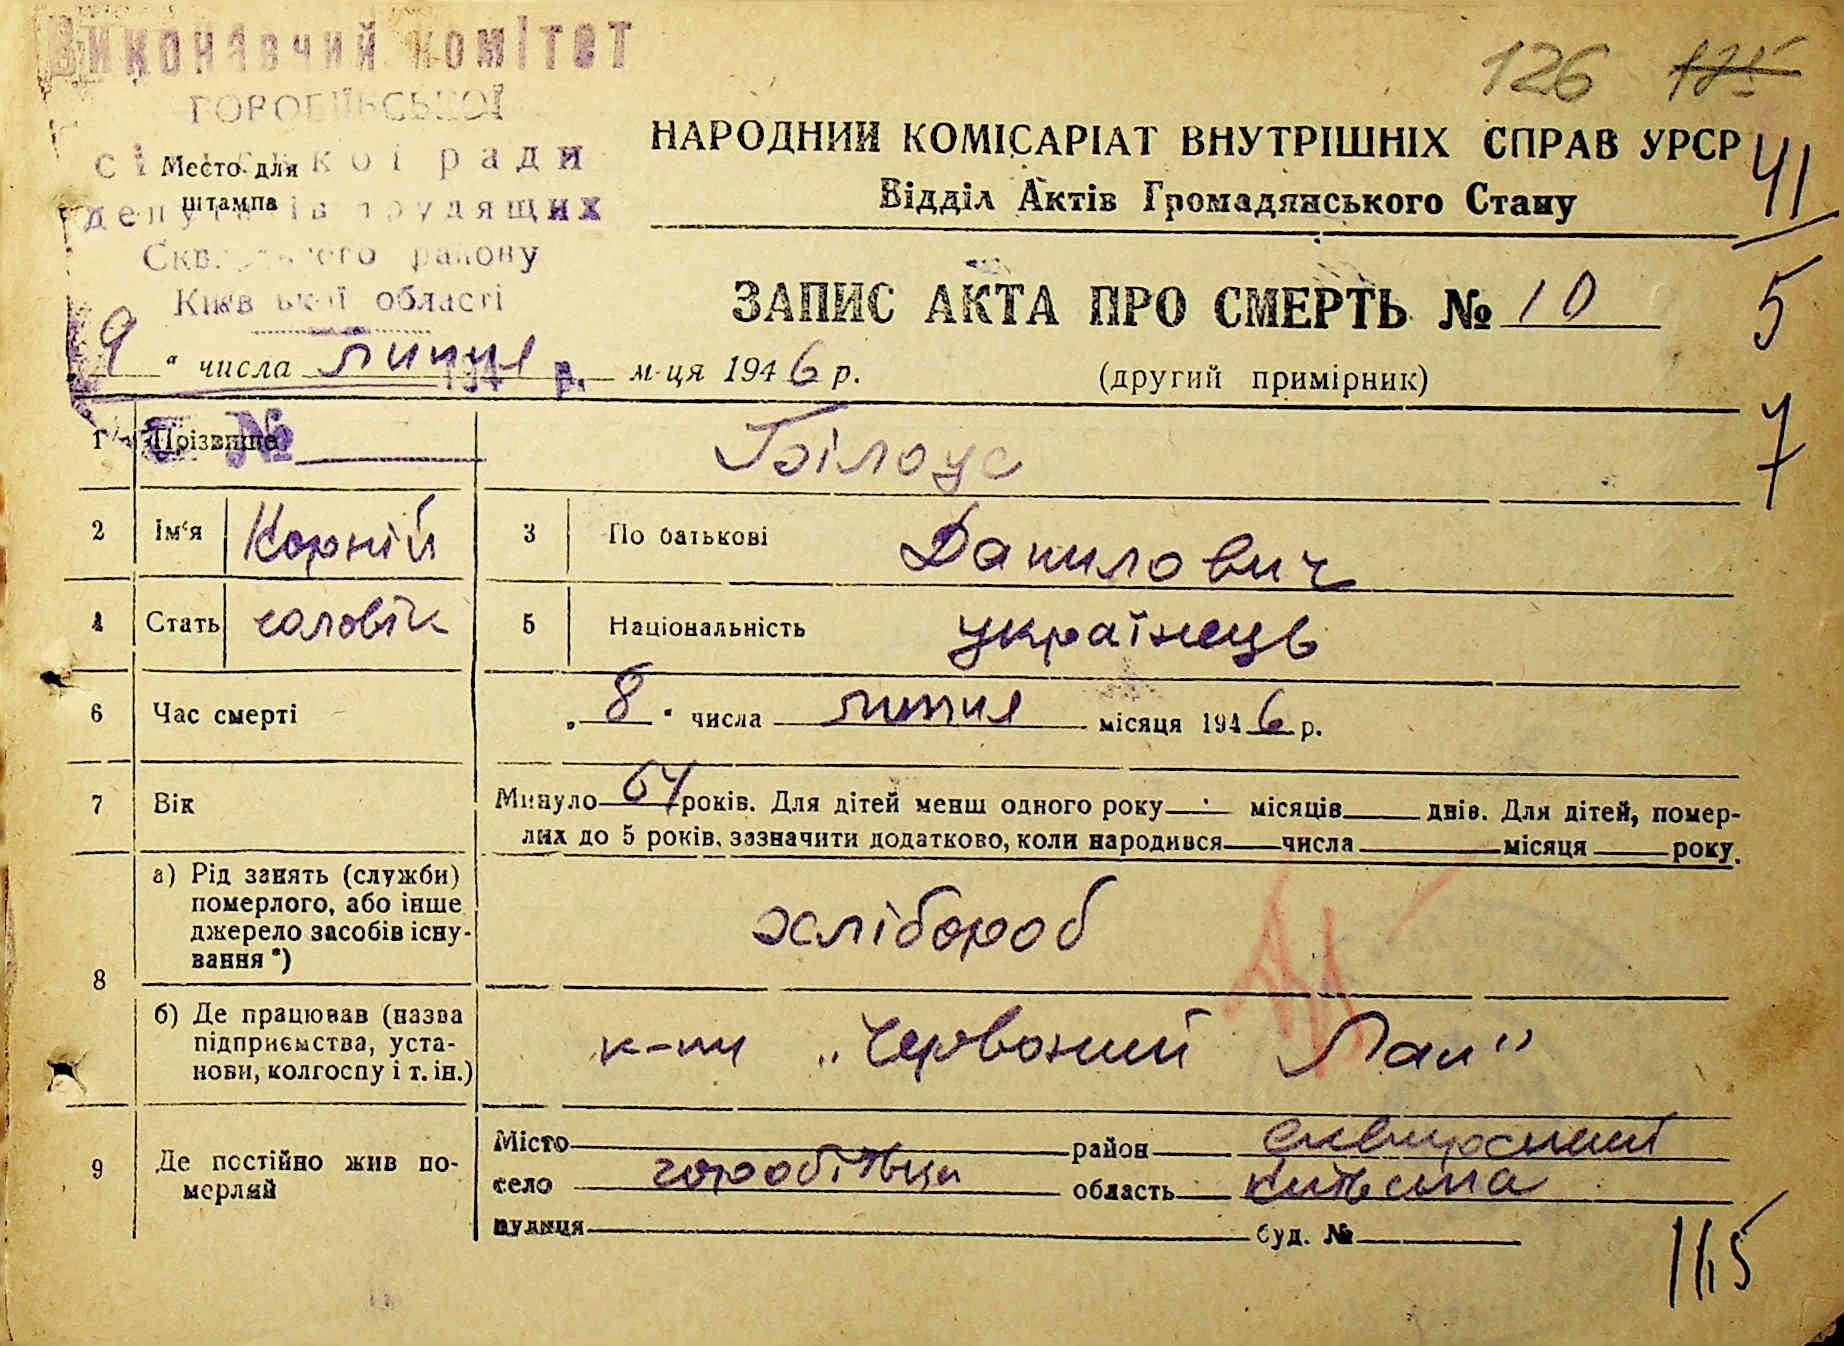 Виконавчий комітет
сільської ради
депутатів трудящих
Сквирського району
Київської області
Место для
штампа
126
НАРОДНИЙ КОМІСАРІАТ ВНУТРІШНІХ СПРАВ УРСР
41
Відділ Актів Громадянського Стану
5
7
ЗАПИС АКТА ПРО СМЕРТЬ № 10
9 " числа липня м-ця 1946 р.
(другий примірник)
194 р.
№
1 Прізвище Білоус
2 Ім'я Корній 3 По батькові Данилович
4 Стать чоловік 5 Національність українець
6 Час смерті „ 8 " числа липня місяця 1946 р.
7 Вік Минуло 64 років. Для дітей менш одного року місяців днів. Для дітей, помер-
лих до 5 років, зазначити додатково, коли народився числа місяця року.
8 а) Рід занять (служби)
померлого, або інше
джерело засобів існу-
вання *)
хлібороб
б) Де працював (назва
підприємства, уста-
нови, колгоспу і т. ін.)
к-пи „Червоний Лан"
9 Де постійно жив по-
мерлий
Місто район сквирський
село горобіївци область київська
вулиця буд. №
165